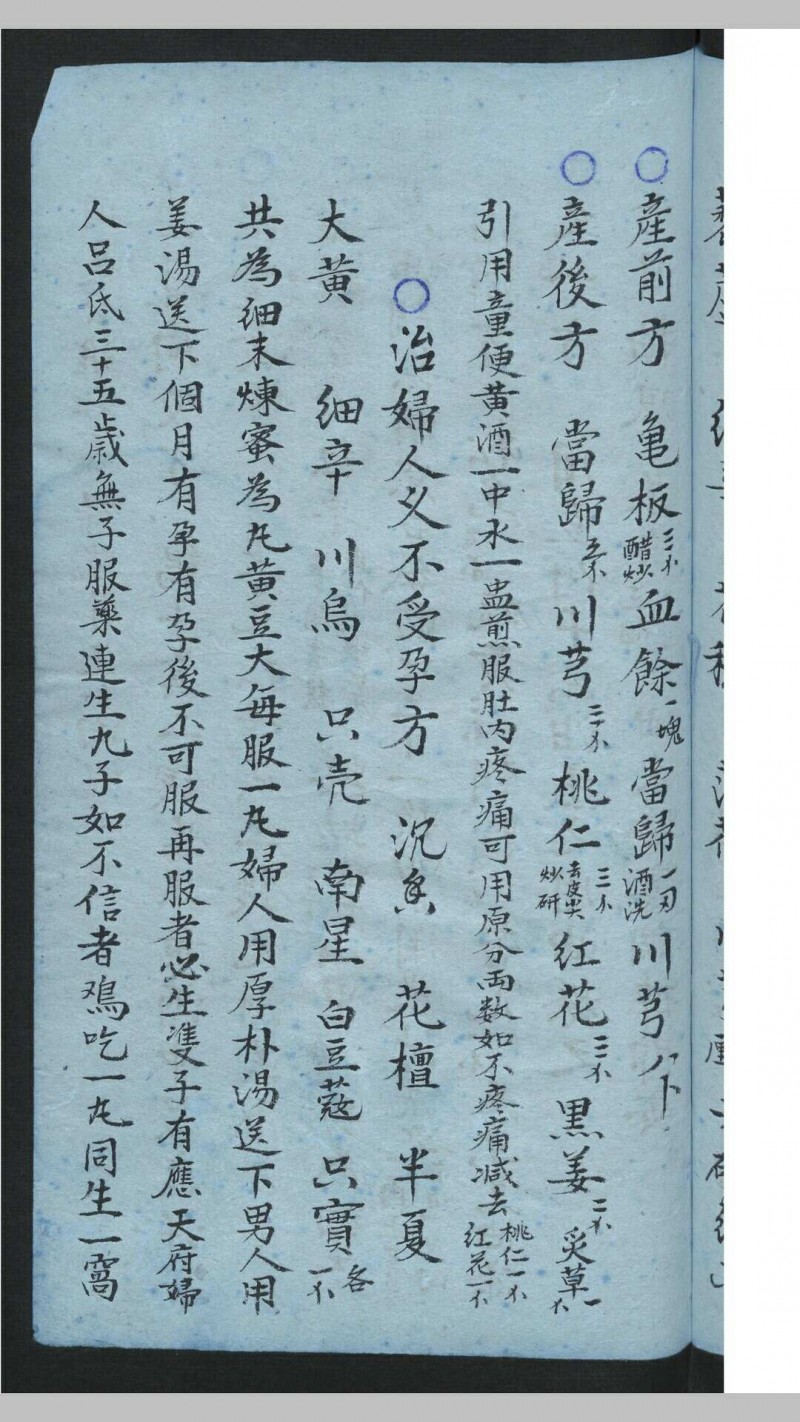 ○產前方 亀板三ホ醋炒 血餘一塊 當歸一刃酒洗 川芎
○產後方 當歸五ホ 川芎三ホ 桃仁三ホ去皮尖炒研 紅花三ホ 黒姜二ホ 炙草一ホ
引用童便黄酒一中水一盅煎服肚内疼痛可用原分両数如不疼痛减去桃仁一ホ紅花一ホ
○治婦人义不受孕方 沉香 花檀 半夏
大黄 細辛 川烏 只壳 南星 白豆蔻 只實各一ホ
共為細末煉蜜為丸黄豆大每服一丸婦人用厚朴湯送下男人用
姜湯送下個月有孕有孕後不可服再服者必生雙子有應天府婦
人呂氏三十五歲無子服藥連生九子如不信者鳮吃一丸同生一窩